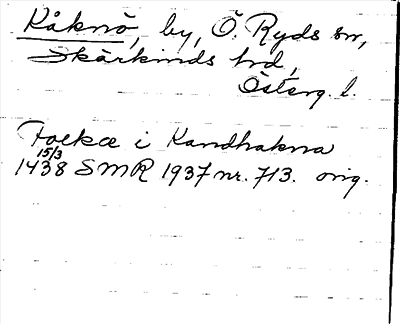 Råknö, by, Ö. Ryds sn,
Skärkinds hrd,
Österg. l.
Folka i Kandhakna
15/3
1438 SMR 1937 nr. 713. orig.